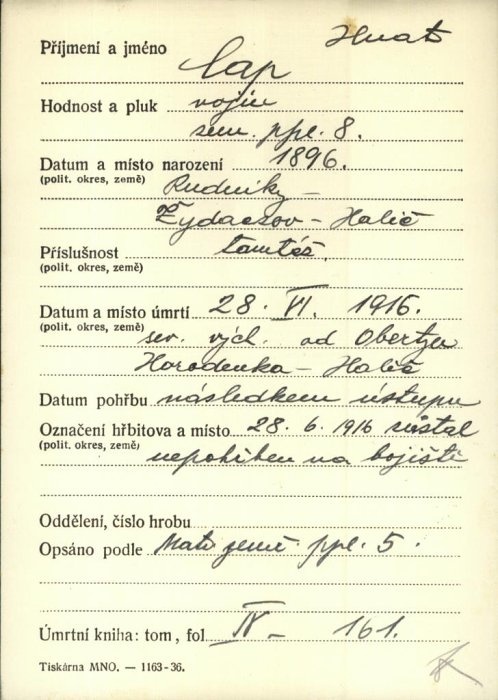 Hnat
Příjmení a jméno Cap
Hodnost a pluk vojín
zem. ppl. 8.
Datum a místo narození 1896.
(polit. okres, země) Rudniky –
Žydaczov – Halič
Příslušnost tamtéž.
(polit. okres, země)
Datum a místo úmrtí 28. VI. 1916.
(polit. okres, země) sev. vých. od Obertyn
Horodenka – Halič
Datum pohřbu následkem ústupu
Označení hřbitova a místo 28. 6. 1916 zůstal
(polit. okres, země) nepohřben na bojišti
Oddělení, číslo hrobu
Opsáno podle Matr. zemř. ppl. 5.
Úmrtní kniha: tom, fol. IV – 161.
Tiskárna MNO. — 1163-36.